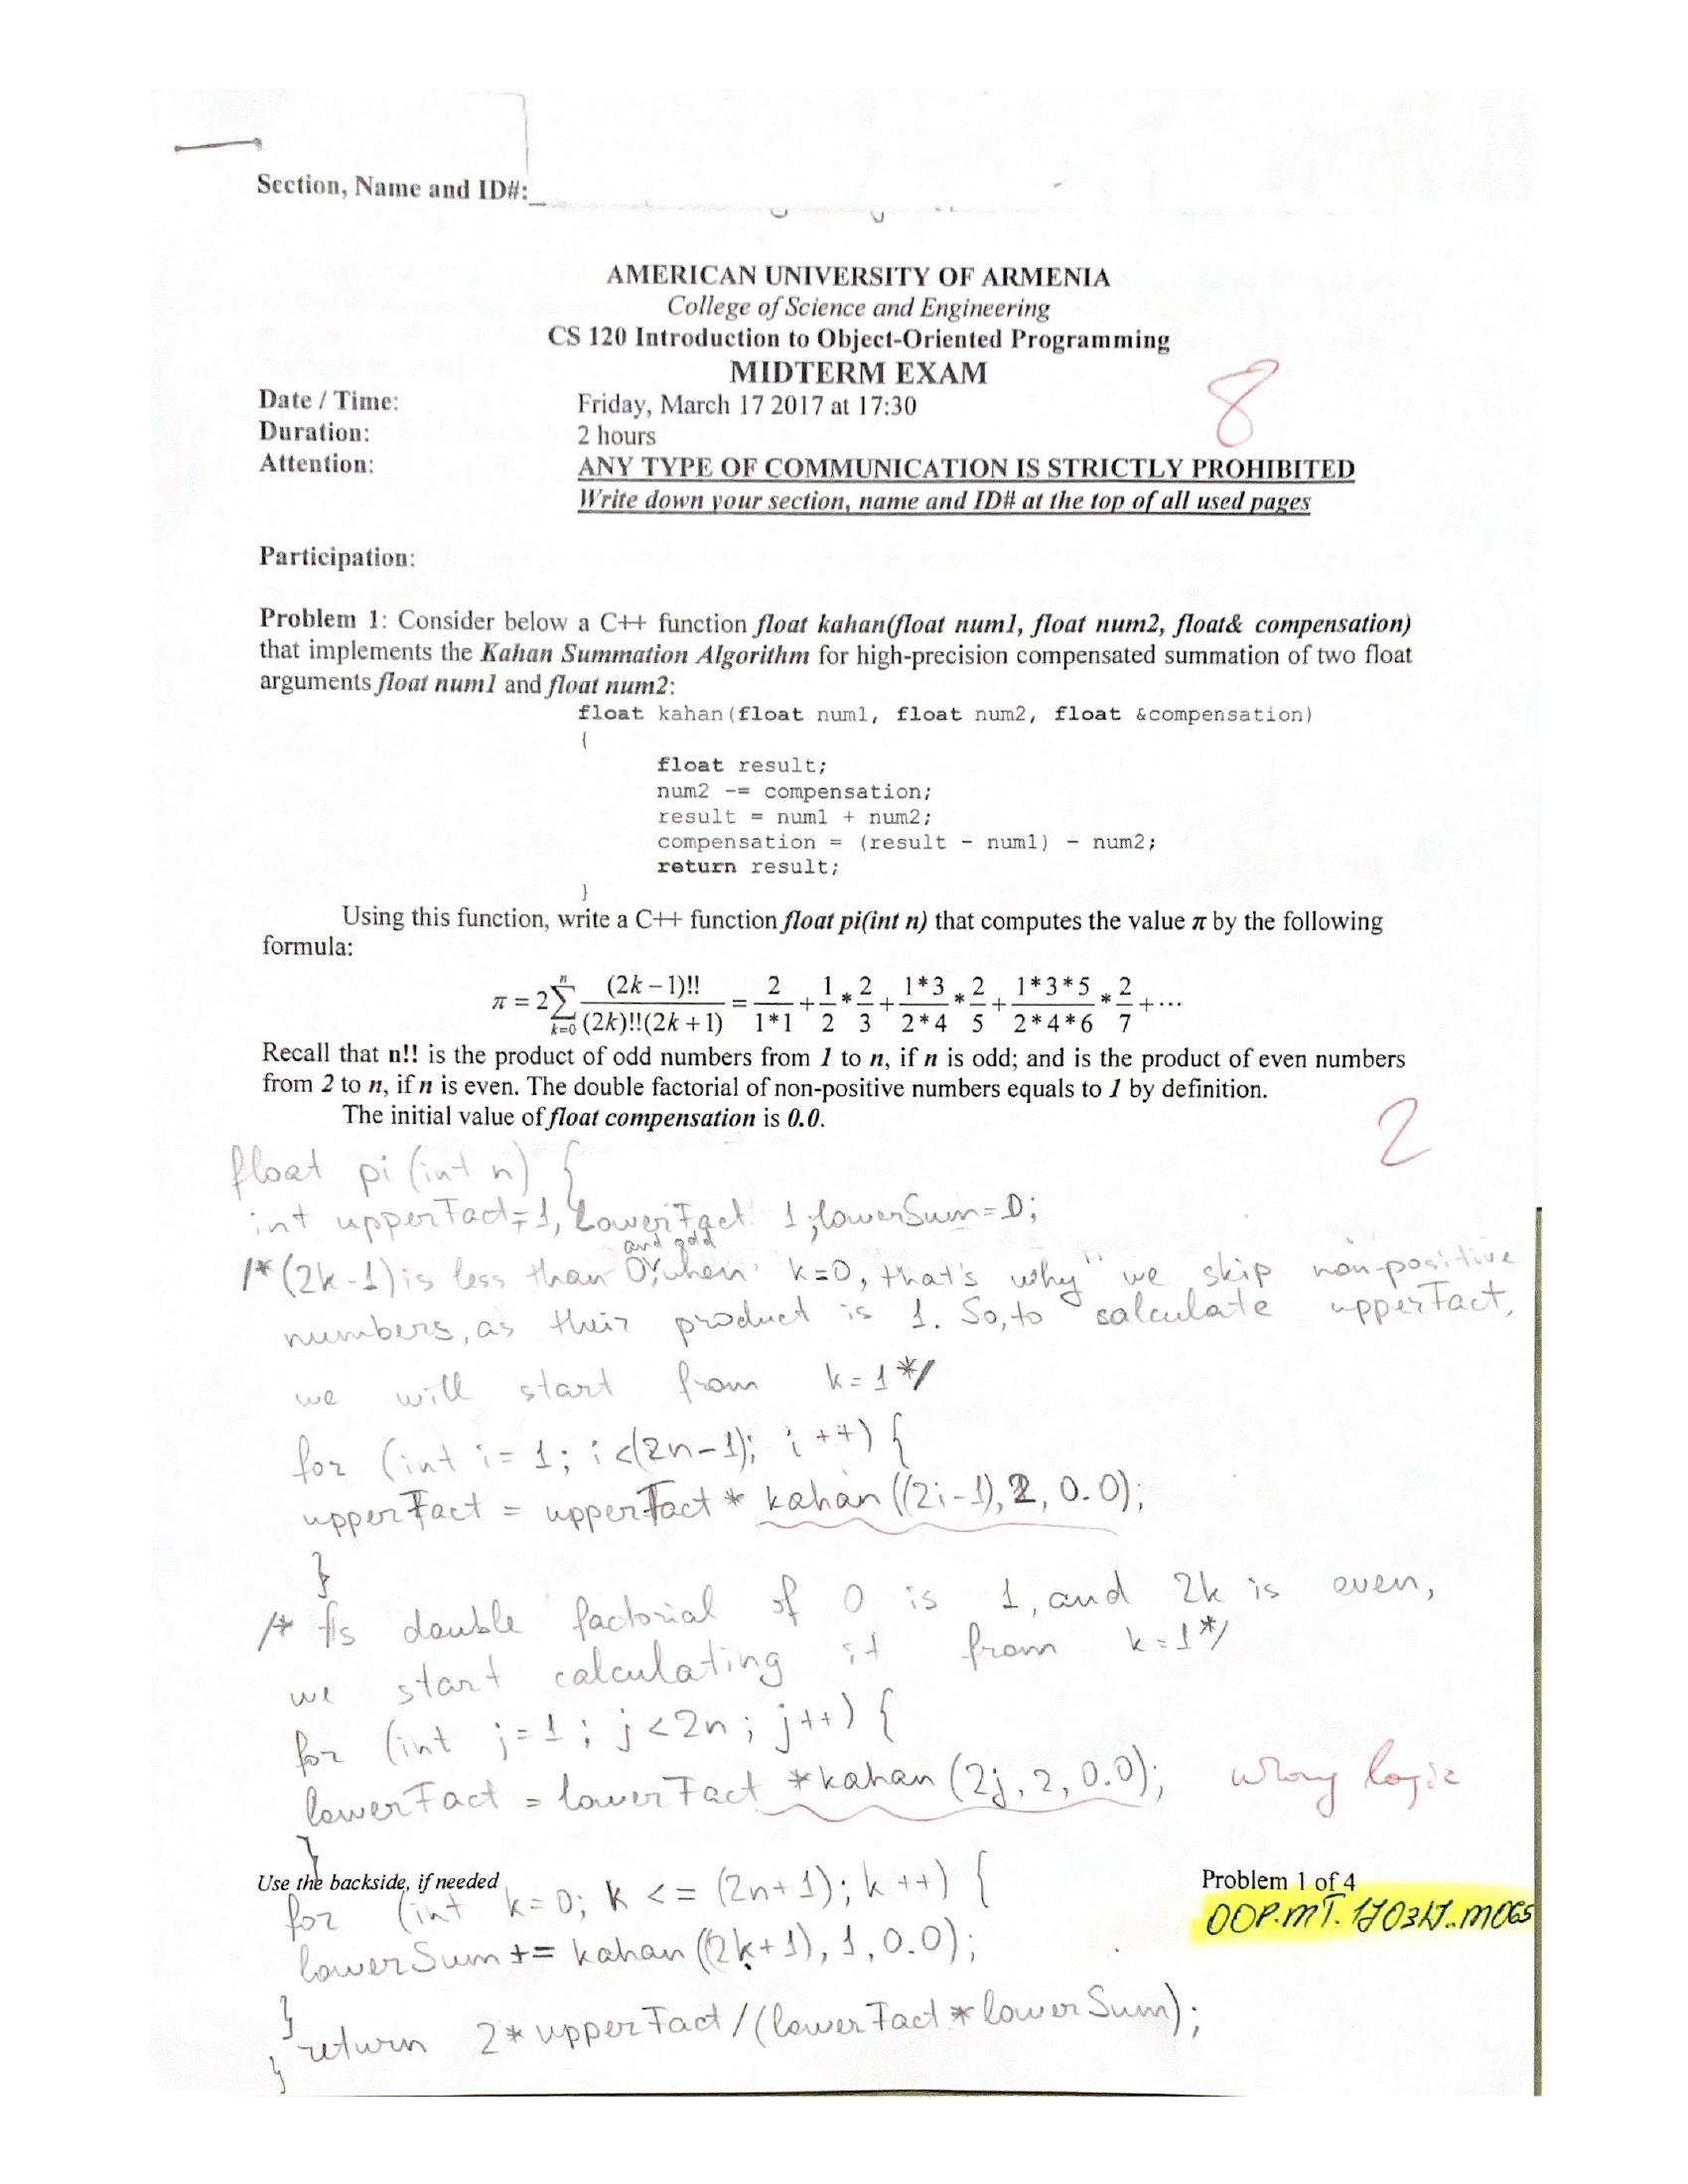 Section, Name and ID#:_
AMERICAN UNIVERSITY OF ARMENIA
College of Science and Engineering
CS 120 Introduction to Object-Oriented Programming
MIDTERM EXAM
8
Date / Time: Friday, March 17 2017 at 17:30
Duration: 2 hours
Attention: ANY TYPE OF COMMUNICATION IS STRICTLY PROHIBITED
Write down your section, name and ID# at the top of all used pages
Participation:
Problem 1: Consider below a C++ function float kahan(float num1, float num2, float& compensation)
that implements the Kahan Summation Algorithm for high-precision compensated summation of two float
arguments float num1 and float num2:
float kahan(float num1, float num2, float &compensation)
{
float result;
num2 -= compensation;
result = num1 + num2;
compensation = (result - num1) - num2;
return result;
}
Using this function, write a C++ function float pi(int n) that computes the value π by the following
formula:
π = 2 n∑k=0 (2k−1)!! / (2k)!!(2k+1) = 2/1*1 + 1/2 * 2/3 + 1*3/2*4 * 2/5 + 1*3*5/2*4*6 * 2/7 + ⋯
Recall that n!! is the product of odd numbers from 1 to n, if n is odd; and is the product of even numbers
from 2 to n, if n is even. The double factorial of non-positive numbers equals to 1 by definition.
The initial value of float compensation is 0.0.
2
float pi (int n) {
int upperFact=1, LowerFact 1; lowerSum=0;
and odd
/*(2k-1) is less than 0, when k=0, that's why we skip non-positive
numbers, as their product is 1. So, to calculate upperFact,
we will start from k=1*/
for (int i=1; i<(2n-1); i++) {
upperFact = upperFact * kahan((2i-1), 2, 0.0);
}
/* As double factorial of 0 is 1, and 2k is even,
we start calculating it from k=1*/
for (int j=1; j<2n; j++) {
lowerFact = lowerFact *kahan(2j, 2, 0.0); wrong logic
}
Use the backside, if needed Problem 1 of 4
for (int k=0; k <= (2n+1); k++) {
OOP.MT.170317.M065
lowerSum += kahan((2k+1), 1, 0.0);
}
return 2*upperFact/(lowerFact*lowerSum);
}